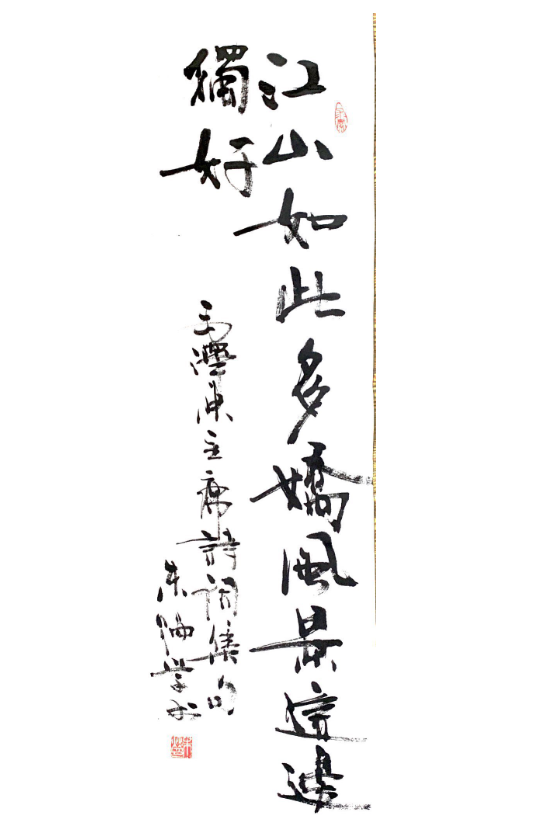 江山如此多嬌風景這邊
獨好
毛澤東主席詩詞集句
朱